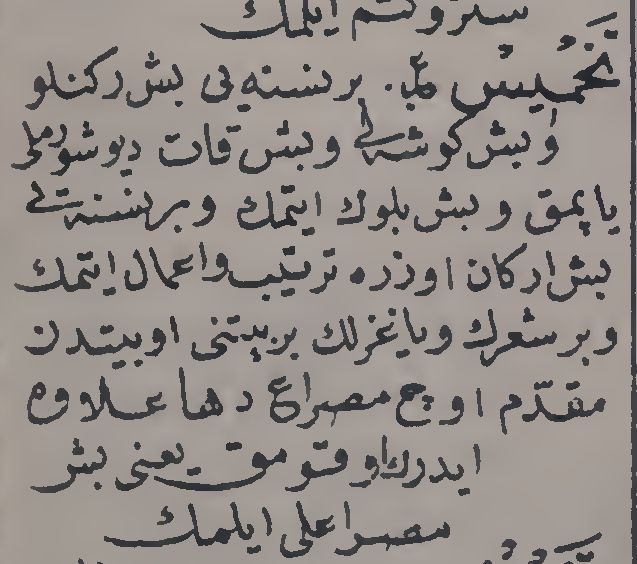 ستر و کتم ایلمك
تَخْمِیْس ع. بر نسنه یی بش رکنلو
و بش کوشه لی و بش قات دیوشورملی
یاپمق و بش بلوك ایتمك و بر نسنه یی
بش ارکان اوزره ترتیب و اعمال ایتمك
و بر شعرك و یا غزلك بر بیتنی او بیتدن
مقدّم اوچ مصراع دها علاوه
ایدرك اوقومق یعنی بش
مصراعلی ایلمك